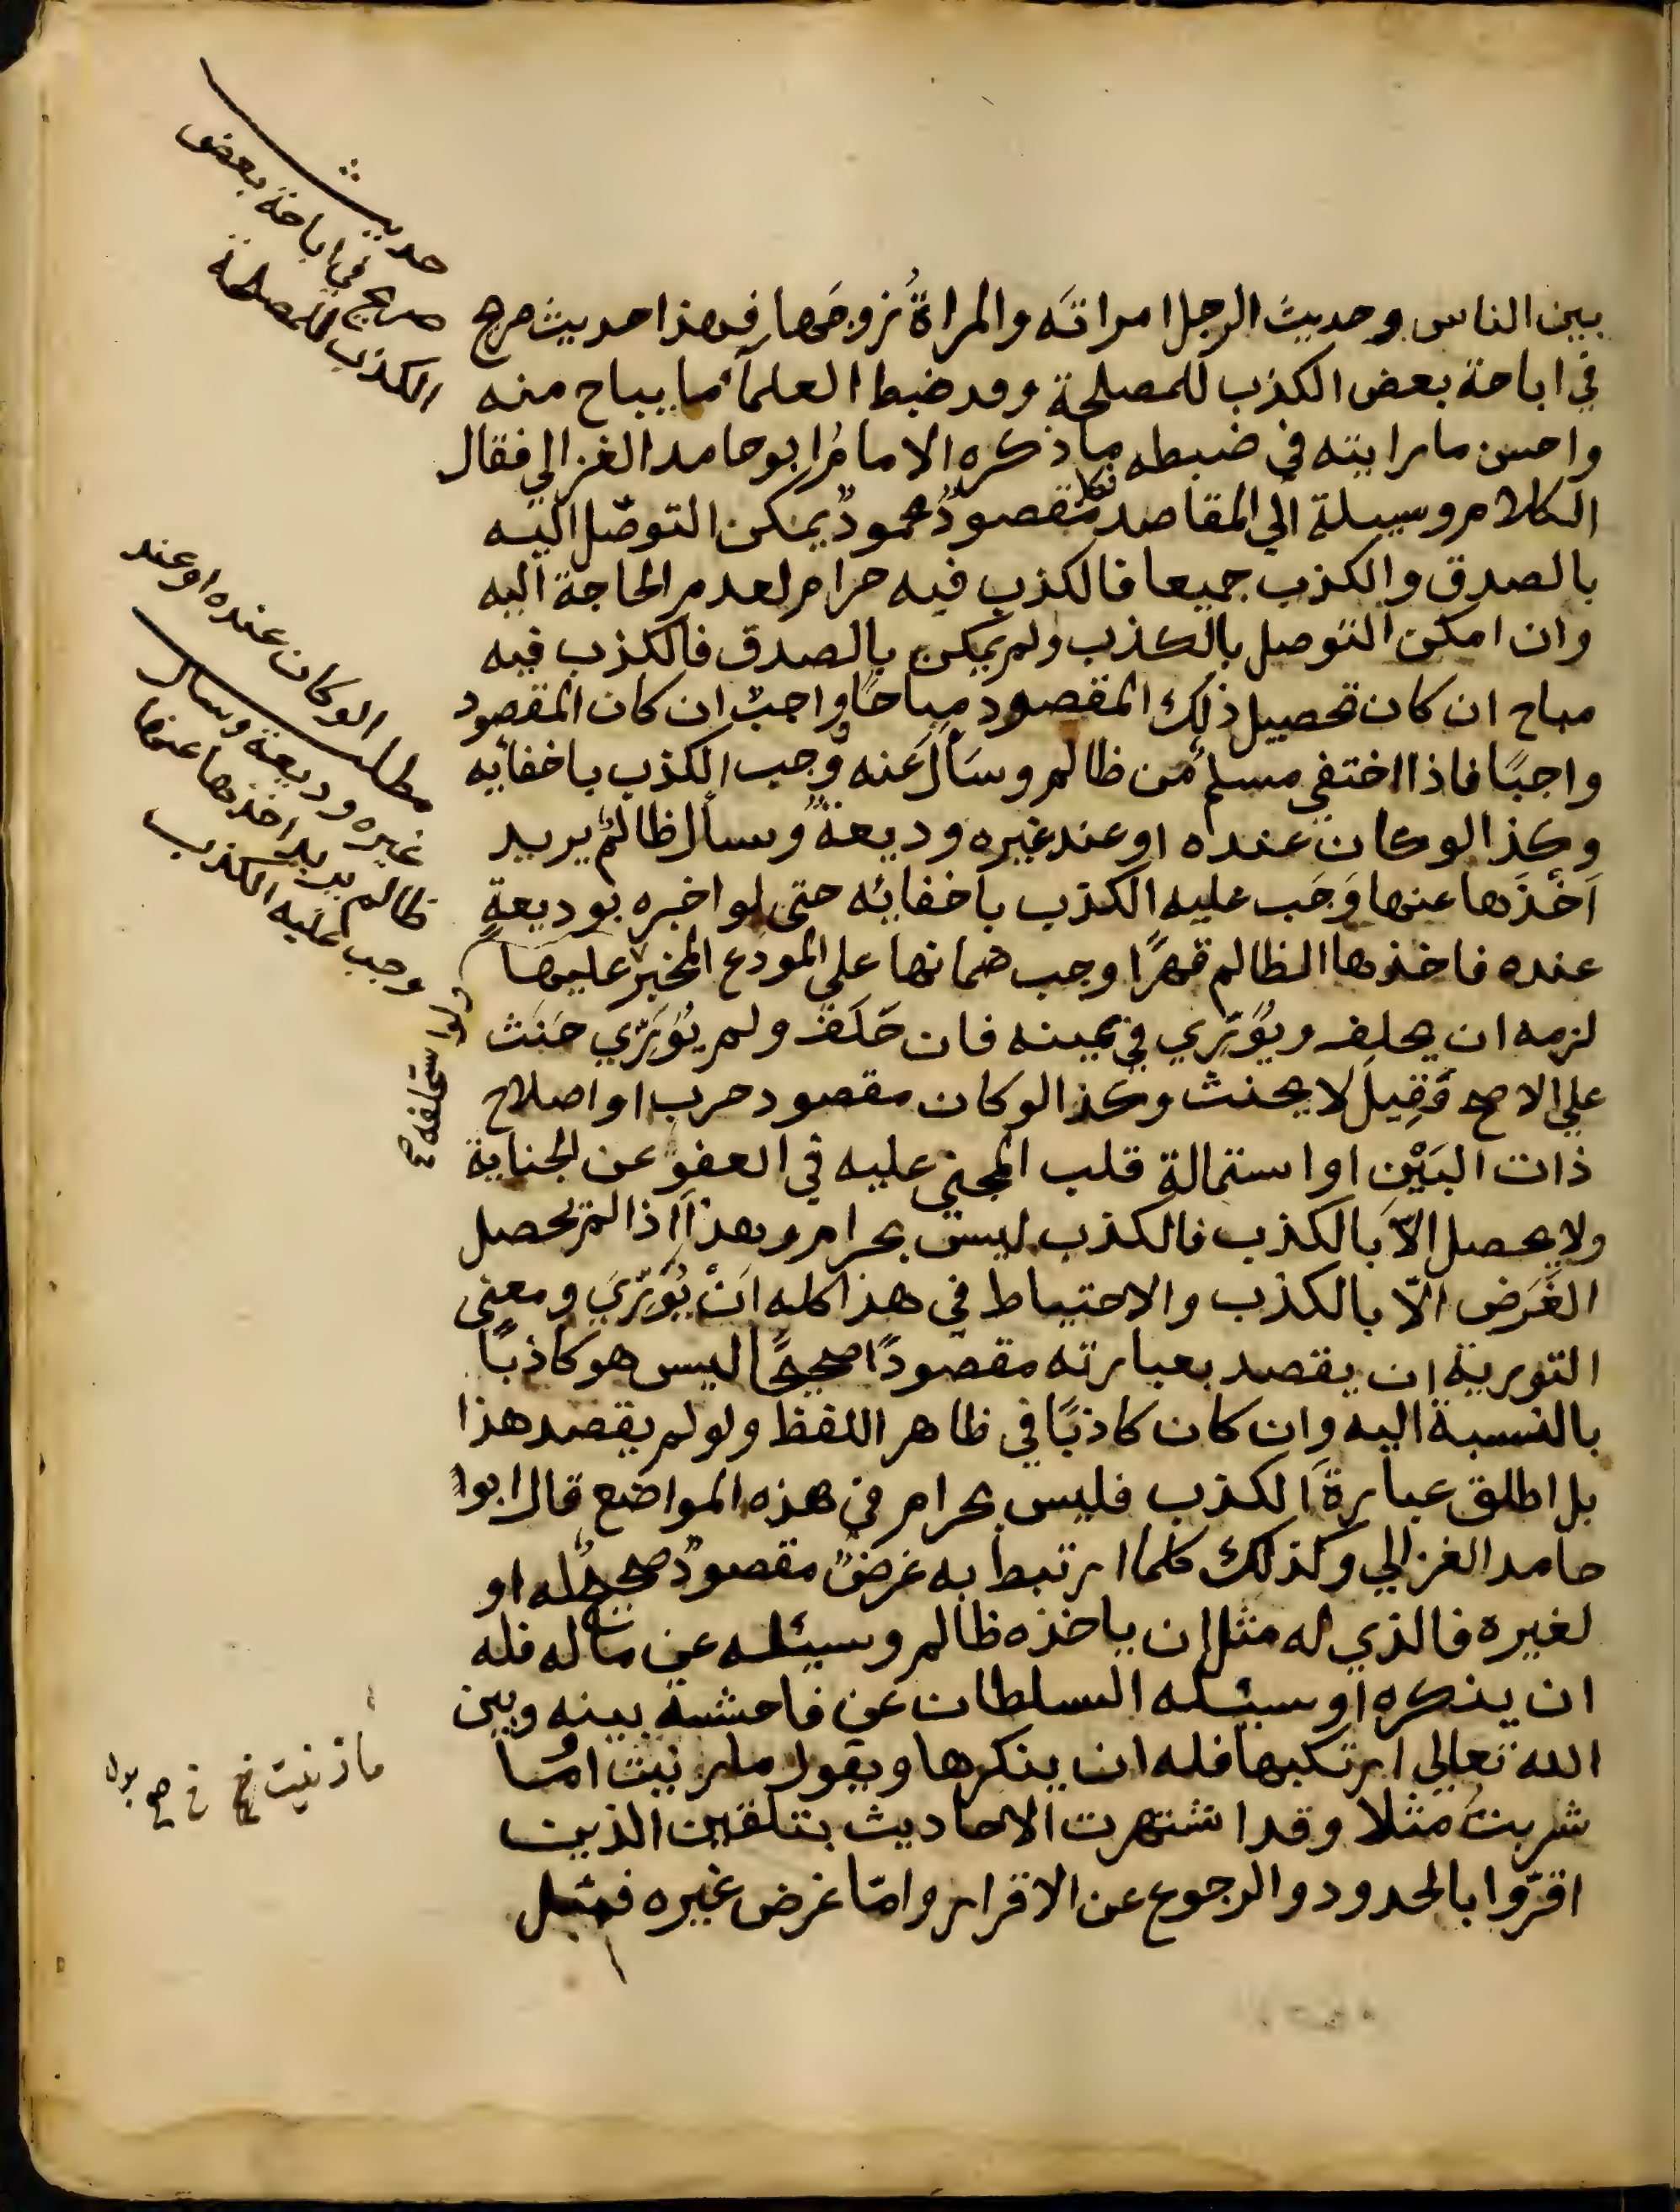 بين الناس وحديث الرجل امراتَه والمراةُ زوجَها فهذا حديث صريح
في اباحة بعض الكذب للمصلحة وقد ضبط العلمآء ما يباح منه
واحسن ما رايته في ضبطه ما ذكره الامامُ ابو حامد الغزالي فقال
الكلام وسيلة الي المقاصد فكل مقصودٍ محمودٍ يمكن التوصّل اليه
بالصدق والكذب جميعا فالكذب فيه حرام لعدم الحاجة اليه
وان امكن التوصل بالكذب ولم يمكن بالصدق فالكذب فيه
مباح ان كان تحصيل ذلك المقصود مباحًا وواجبٌ ان كان المقصود
واجبًا فاذا اختفي مسلمٌ من ظالم وسَأل عنه وَجب الكذب باخفائه
وكذا لو كان عنده او عند غيره وديعةٌ وسأل ظالمٌ يريد
اَخْذَها عنها وَجَب عليه الكذب باخفائه حتى لو اخبره بوديعةٍ
عنده فاخذها الظالم قهرًا وجب ضمانها علي المودَع المخبر عليها
لزمه ان يحلف ويُوَرِّي في يمينه فان حَلَفَ ولم يُوَرِّي حَنَث
علي الاصح وَقِيلَ لا يحنث وكذا لو كان مقصود حرب او اصلاح
ذات البَيْنِ او استمالة قلب المجني عليه في العفو عن الجناية
ولا يحصل الاّ بالكذب فالكذب ليس بحرام وهذا اذا لم يحصل
الغَرَض الّا بالكذب والاحتياط في هذا كله اَنْ يُوَرِّيَ ومعنى
التورية ان يقصد بعبارته مقصودًا صحيحًا ليس هو كاذبًا
بالنسبة اليه وان كان كاذبًا في ظاهر اللفظ ولو لم يقصد هذا
بل اطلق عبارة الكذب فليس بحرام في هذه المواضع قال ابوا
حامد الغزالي وكذلك كلما ارتبط به غرضٌ مقصودٌ صحيحٌ له او
لغيره فالذي له مثل ان ياخذه ظالم ويسئله عن ماله فله
ان ينكره او يسئله السلطان عن فاحشة بينه وبين
الله تعالي ارتكبها فله ان ينكرها ويقول ما زنيت او ما
شربتُ مثلا وقد اشتهرت الاحاديث بتلقين الذين
اقرّوا بالحدود والرجوع عن الاقرار وامّا غرض غيره فمثل
حديث
صريح في اباحة بعض
الكذب للمصلحة
مطلب لو كان عنده او عند
غيره وديعة وسال
ظالم يريد اخذها عنها
وجب عليه الكذب
ولو استحلفه صح
ما زنيت